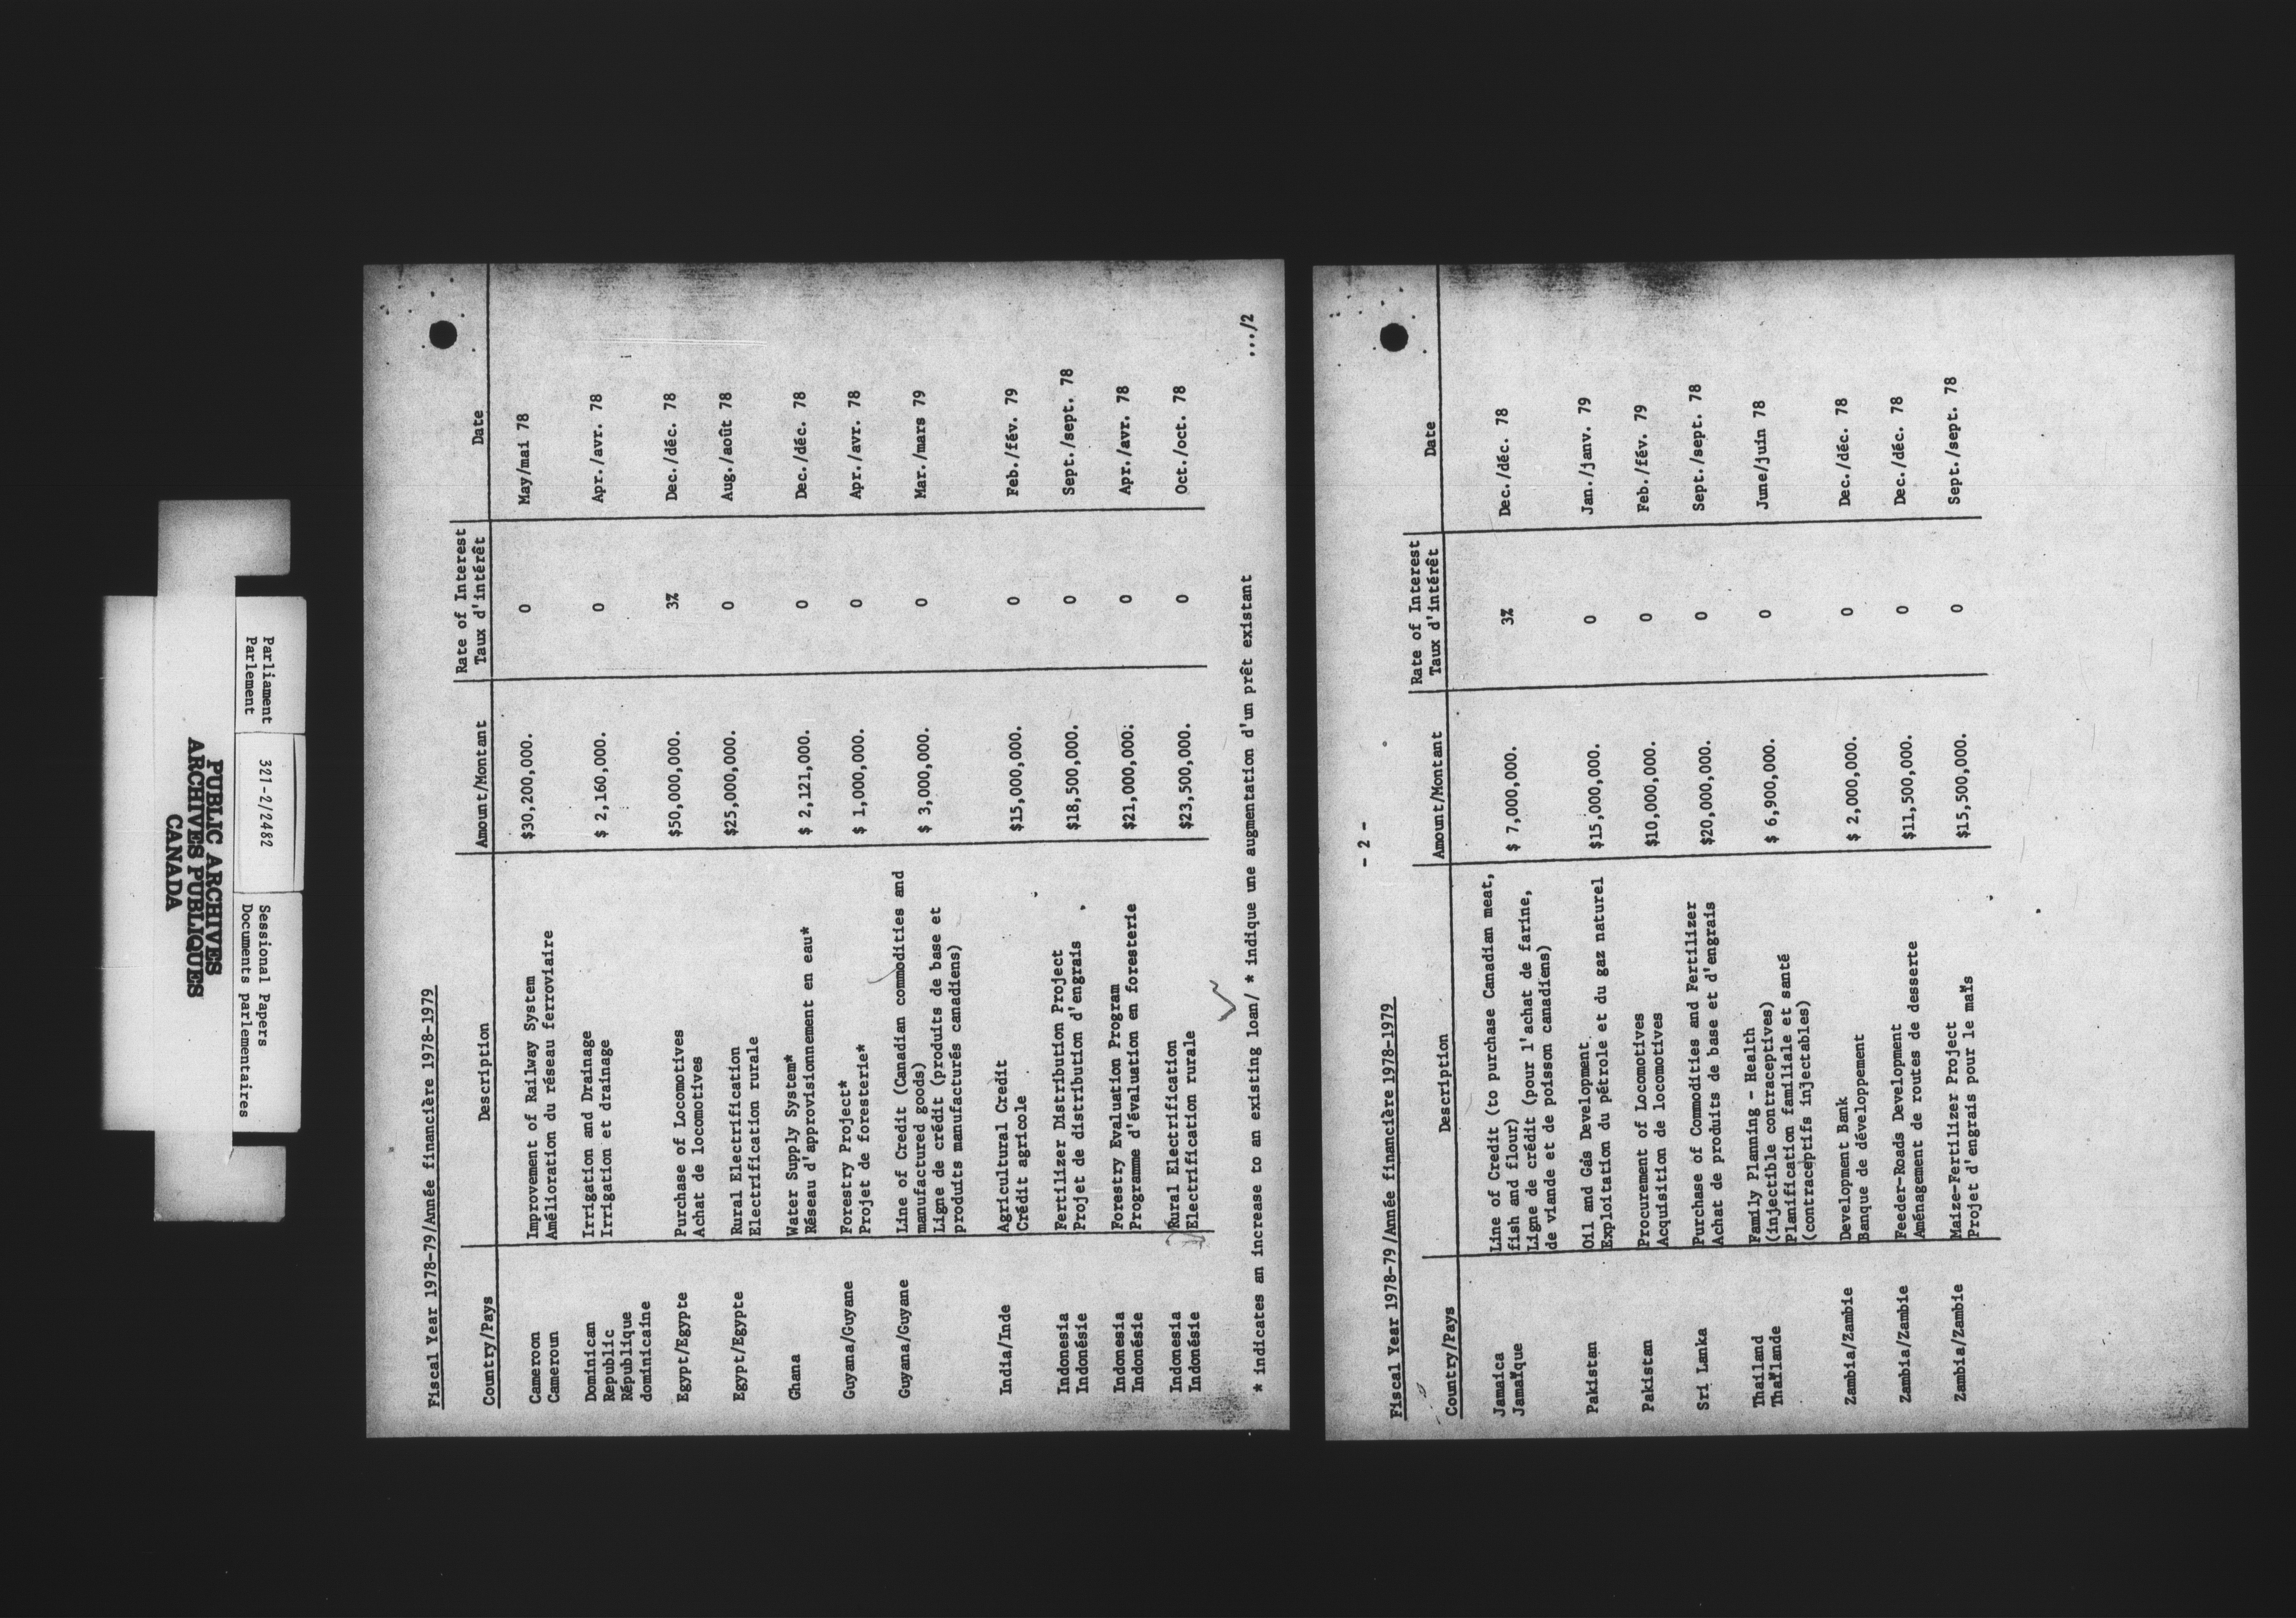 Parliament
Parlement
321-2/2482
Sessional Papers
Documents parlementaires
PUBLIC ARCHIVES
ARCHIVES PUBLIQUES
CANADA
Fiscal Year 1978-79/Année financière 1978-1979
Country/Pays Description Amount/Montant Rate of Interest Date
Taux d'intérêt
Cameroon Improvement of Railway System $30,200,000. 0 May/mai 78
Cameroun Amélioration du réseau ferroviaire
Dominican Irrigation and Drainage $ 2,160,000. 0 Apr./avr. 78
Republic Irrigation et drainage
République
dominicaine
Egypt/Egypte Purchase of Locomotives $50,000,000. 3% Dec./déc. 78
Achat de locomotives
Egypt/Egypte Rural Electrification $25,000,000. 0 Aug./août 78
Electrification rurale
Ghana Water Supply System* $ 2,121,000. 0 Dec./déc. 78
Réseau d'approvisionnement en eau*
Guyana/Guyane Forestry Project* $ 1,000,000. 0 Apr./avr. 78
Projet de foresterie*
Guyana/Guyane Line of Credit (Canadian commodities and $ 3,000,000. 0 Mar./mars 79
manufactured goods)
Ligne de crédit (produits de base et
produits manufacturés canadiens)
India/Inde Agricultural Credit $15,000,000. 0 Feb./fév. 79
Crédit agricole
Indonesia Fertilizer Distribution Project $18,500,000. 0 Sept./sept. 78
Indonésie Projet de distribution d'engrais
Indonesia Forestry Evaluation Program $21,000,000. 0 Apr./avr. 78
Indonésie Programme d'évaluation en foresterie
Indonesia Rural Electrification $23,500,000. 0 Oct./oct. 78
Indonésie Electrification rurale
* indicates an increase to an existing loan/ * indique une augmentation d'un prêt existant
.../2
- 2 -
Fiscal Year 1978-79/Année financière 1978-1979
Country/Pays Description Amount/Montant Rate of Interest Date
Taux d'intérêt
Jamaica Line of Credit (to purchase Canadian meat, $ 7,000,000. 3% Dec./déc. 78
Jamaïque fish and flour)
Ligne de crédit (pour l'achat de farine,
de viande et de poisson canadiens)
Pakistan Oil and Gas Development $15,000,000. 0 Jan./janv. 79
Exploitation du pétrole et du gaz naturel
Pakistan Procurement of Locomotives $10,000,000. 0 Feb./fév. 79
Acquisition de locomotives
Sri Lanka Purchase of Commodities and Fertilizer $20,000,000. 0 Sept./sept. 78
Achat de produits de base et d'engrais
Thailand Family Planning - Health $ 6,900,000. 0 June/juin 78
Thaïlande (injectible contraceptives)
Planification familiale et santé
(contraceptifs injectables)
Zambia/Zambie Development Bank $ 2,000,000. 0 Dec./déc. 78
Banque de développement
Zambia/Zambie Feeder-Roads Development $11,500,000. 0 Dec./déc. 78
Aménagement de routes de desserte
Zambia/Zambie Maize-Fertilizer Project $15,500,000. 0 Sept./sept. 78
Projet d'engrais pour le maïs